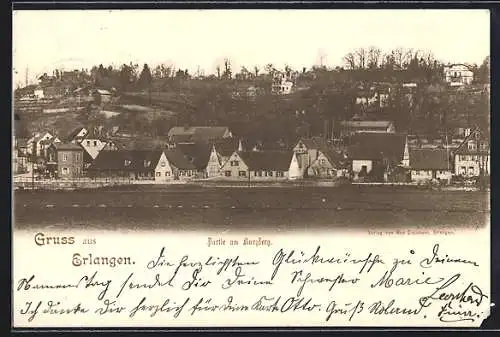 Verlag von
Gruss aus
Erlangen.
Partie am Burgberg.
Die herzlichsten Glückwünsche zu Deinem
Namenstag sendet Dir Deine Schwester Marie
Ich danke Dir herzlich für Deine Karte Otto, Gruß Roland.
Leonhard